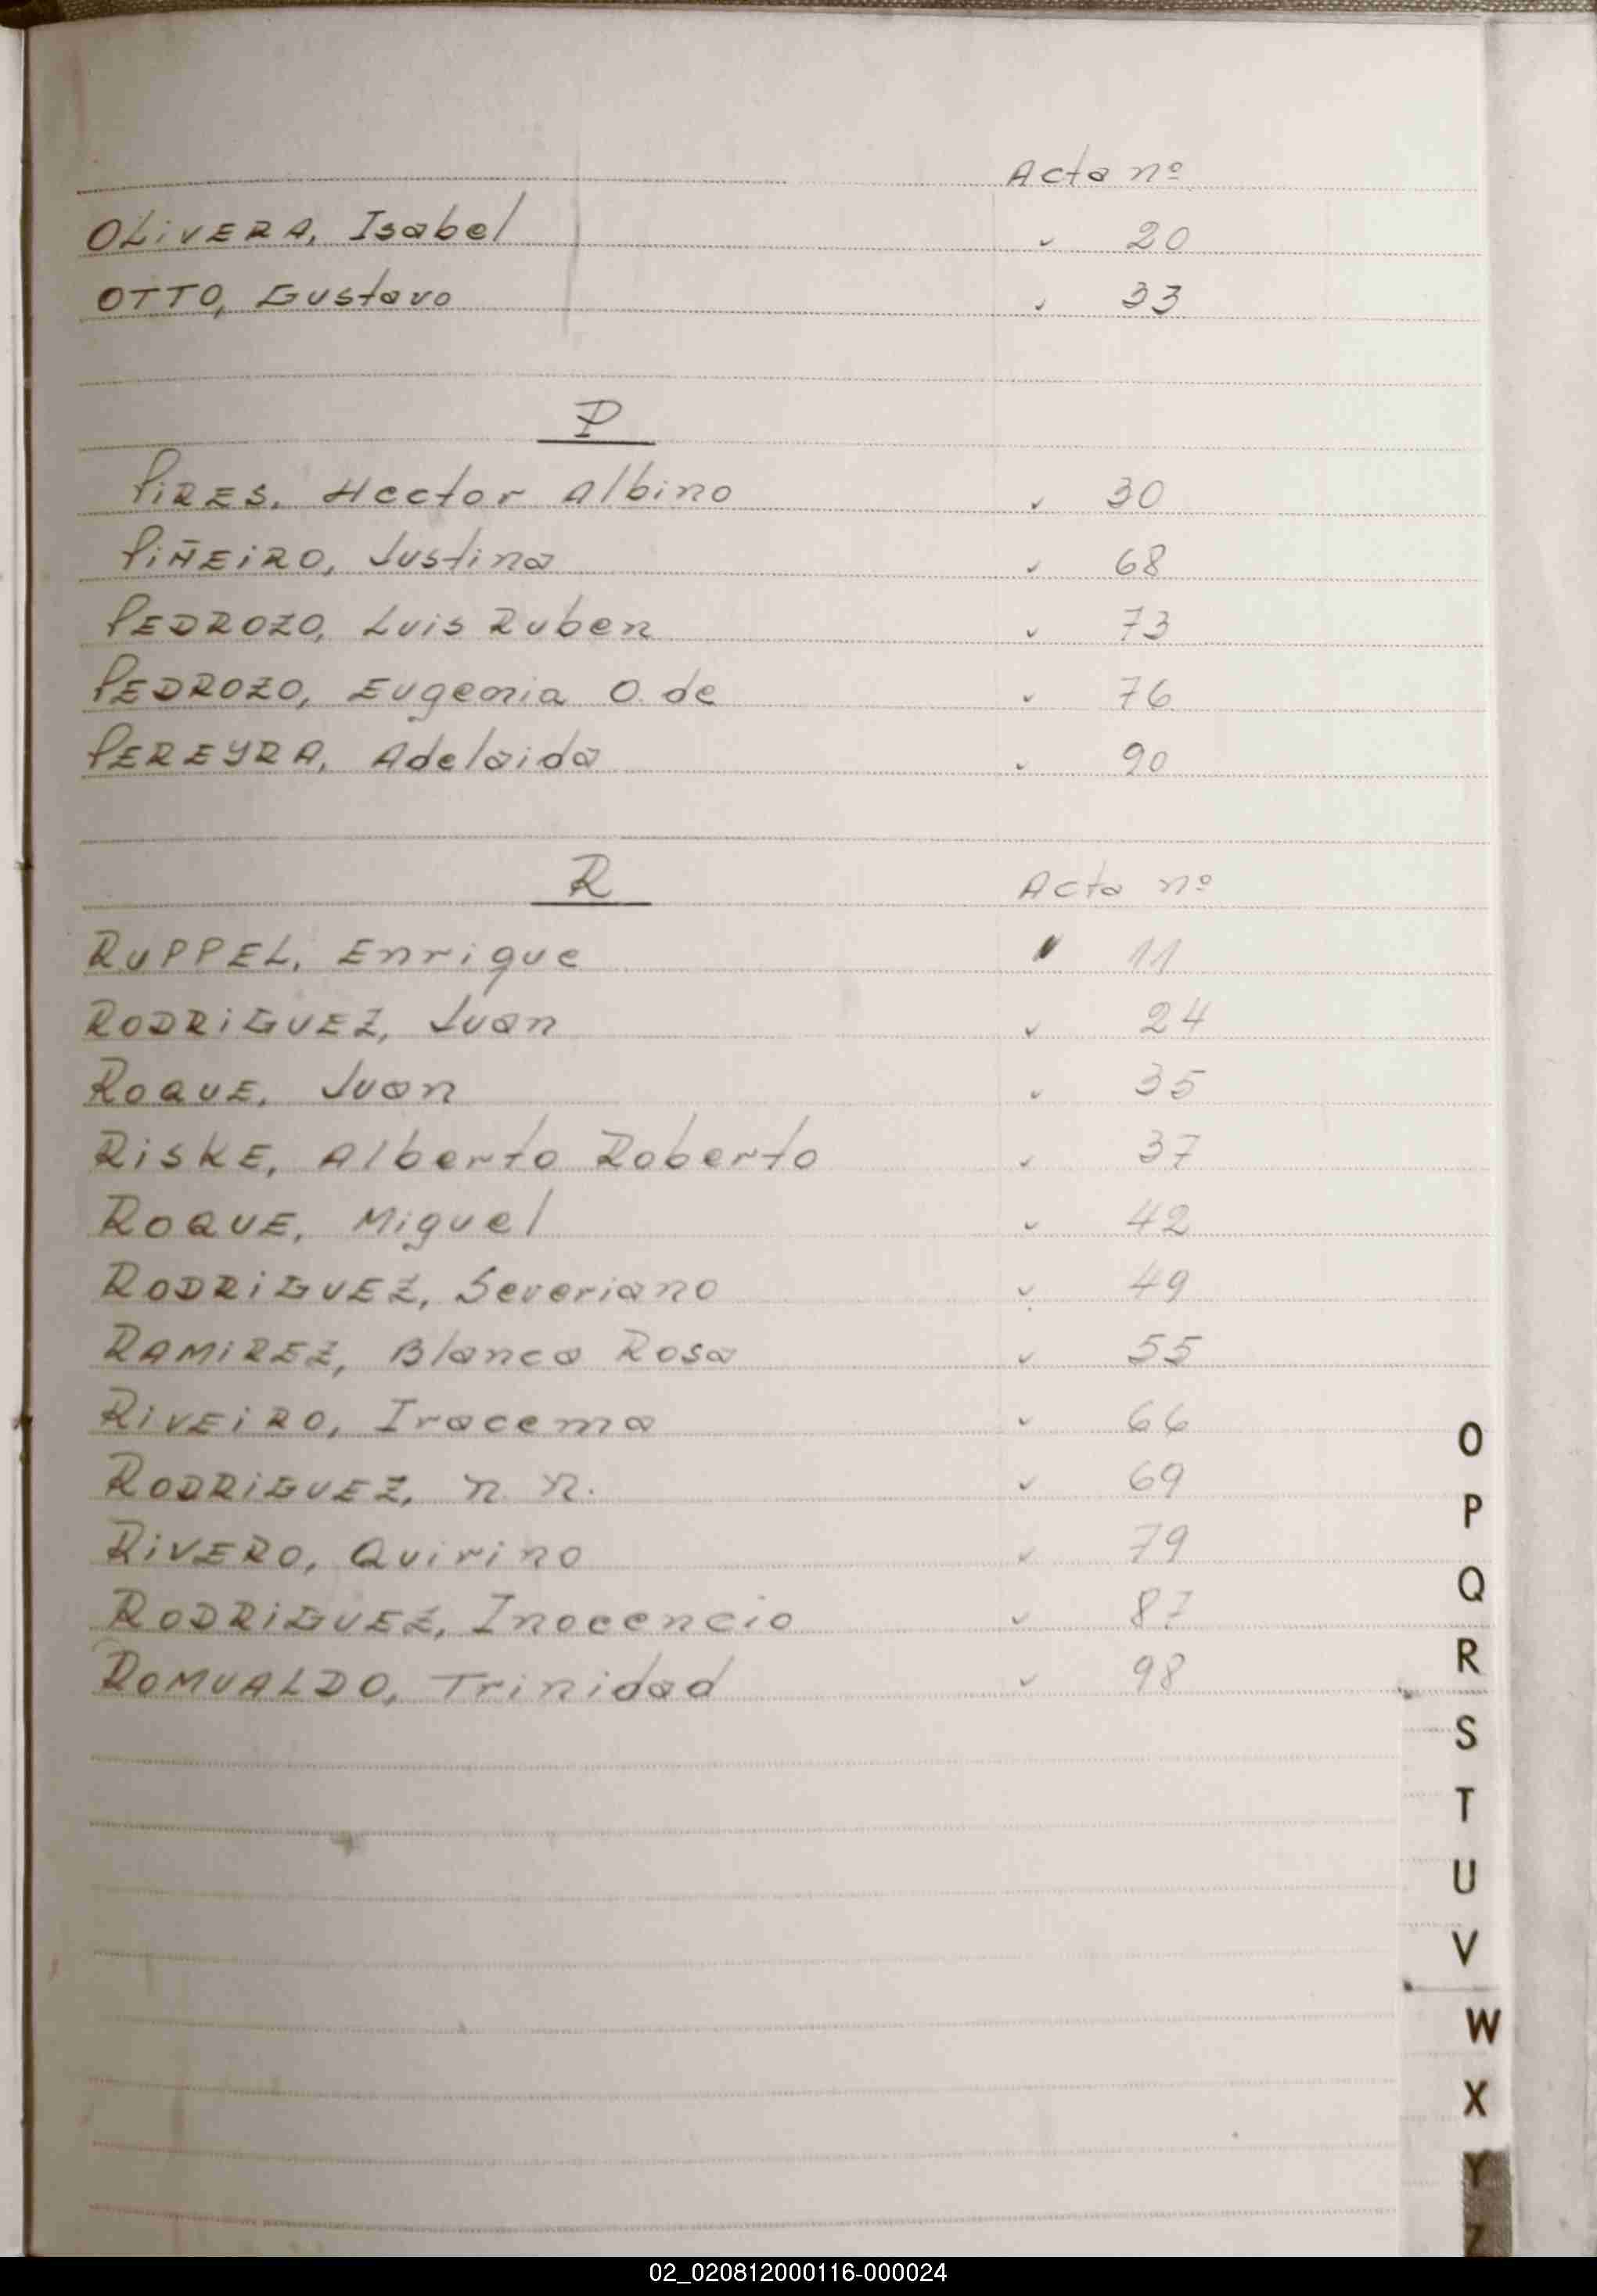 Acta nº
OLIVERA, Isabel ✓ 20
OTTO, Gustavo ✓ 33
P
PIRES, Hector Albino ✓ 30
PIÑEIRO, Justina ✓ 68
PEDROZO, Luis Ruben ✓ 73
PEDROZO, Eugenia O. de ✓ 76
PEREYRA, Adelaida ✓ 90
R Acta nº
RUPPEL, Enrique ✓ 11
RODRIGUEZ, Juan ✓ 24
ROQUE, Juan ✓ 35
RISKE, Alberto Roberto ✓ 37
ROQUE, Miguel ✓ 42
RODRIGUEZ, Severiano ✓ 49
RAMIREZ, Blanca Rosa ✓ 55
RIVEIRO, Iracema ✓ 66
RODRIGUEZ, n. n. ✓ 69
RIVERO, Quirino ✓ 79
RODRIGUEZ, Inocencio ✓ 87
ROMUALDO, Trinidad ✓ 98
O
P
Q
R
S
T
U
V
W
X
Y
Z
02_020812000116-000024